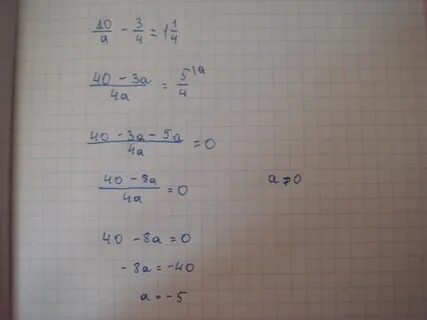 10/a - 3/4 = 1 1/4
(40 - 3a)/4a = 5/4 \a
(40 - 3a - 5a)/4a = 0
(40 - 8a)/4a = 0    a ≠ 0
40 - 8a = 0
-8a = -40
a = -5